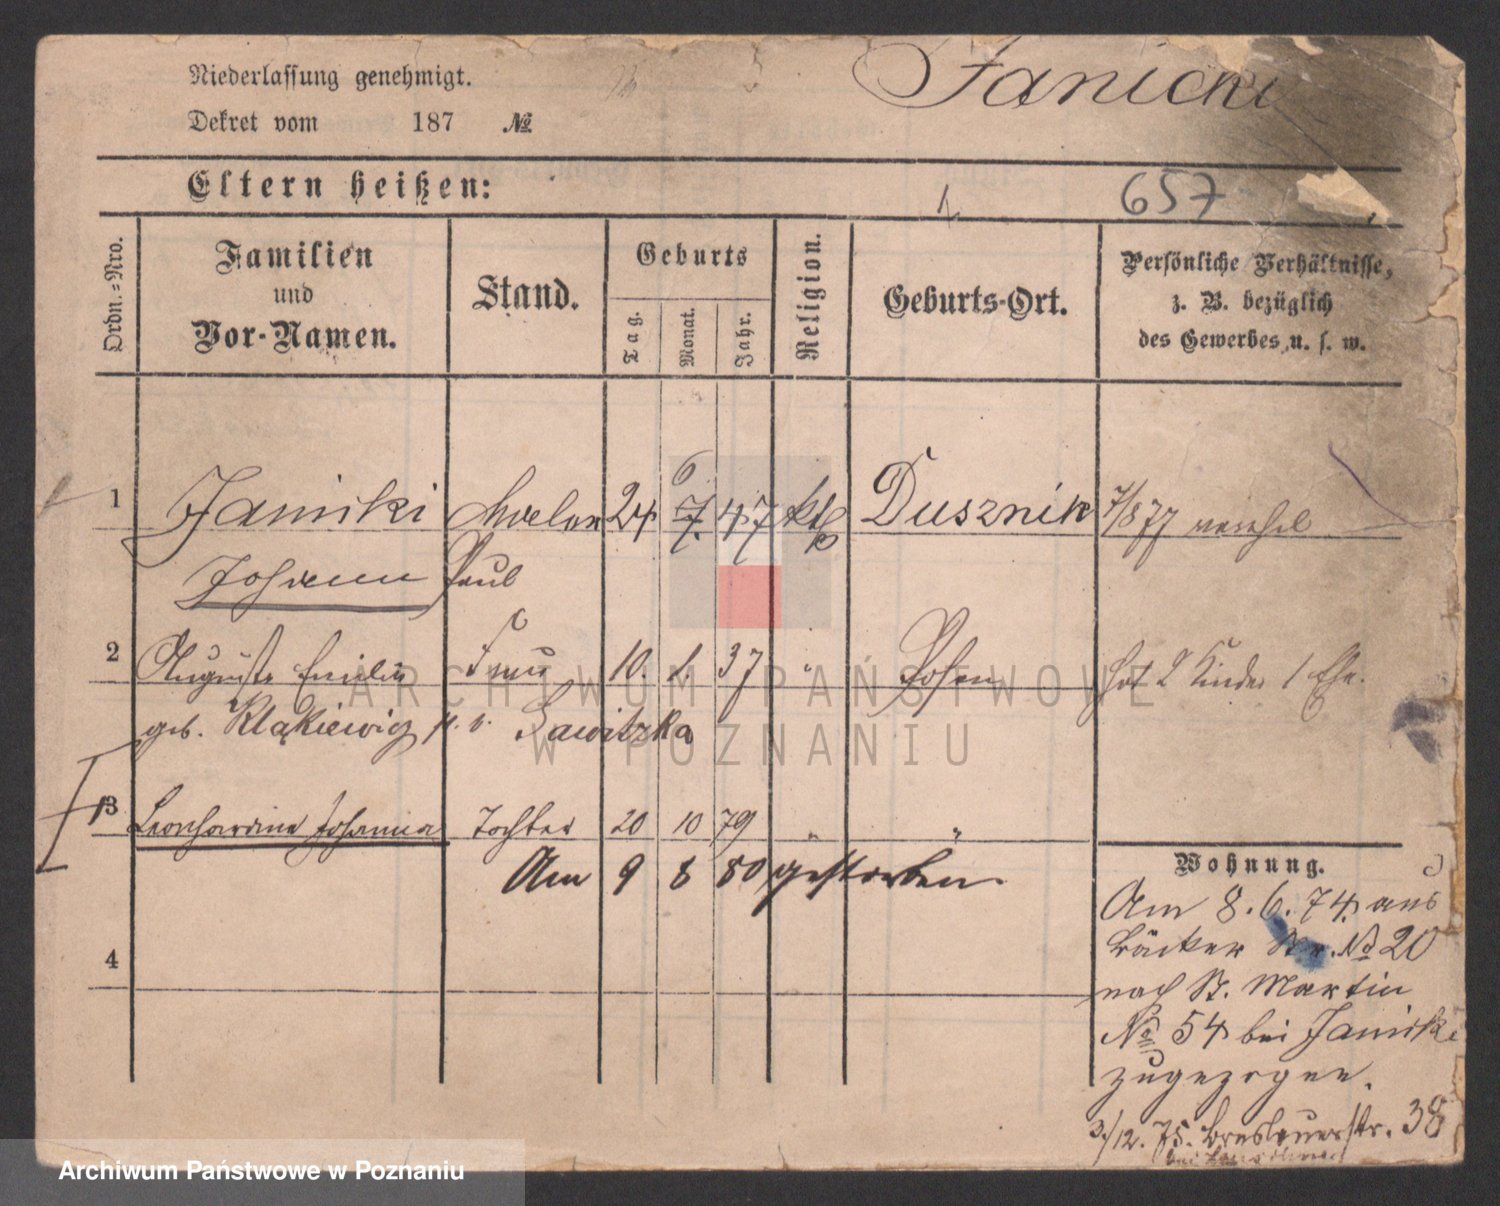 Niederlassung genehmigt.
Janicki
Dekret vom 187 №
Eltern heißen:
657
Ordn.=Nro.
Familien
und
Vor-Namen.
Stand.
Geburts
Tag.
Monat.
Jahr.
Religion.
Geburts-Ort.
Persönliche Verhältnisse,
z. B. bezüglich
des Gewerbes u. s. w.
6
1 Janicki Maler 24 7. 47 kth Dusznik 7/8 77
Johann Paul
2 Auguste Emilie Frau 10. 1. 37 " Posen hat 2 Kinder 1 Ehe.
geb. Kląkiewicz Sawitzka
3 Leonhardine Johanna Tochter 20 10 79 " "
Am 9 8 80 gestorben.
4
Wohnung.
Am 8. 6. 74. aus
Bäcker Str. № 20
nach St. Martin
№ 54 bei Janicki
zugezogen.
3./12. 75. Breslauerstr. 38
ARCHIWUM PAŃSTWOWE
W POZNANIU
Archiwum Państwowe w Poznaniu